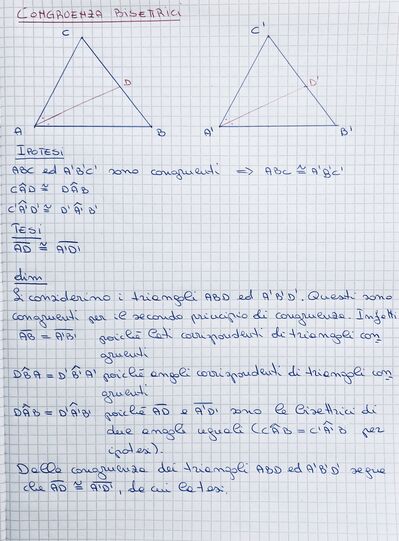 CONGRUENZA BISETTRICI
C C'
D D'
A B A' B'
IPOTESI
ABC ed A'B'C' sono congruenti => ABC ≅ A'B'C'
CÂD ≅ DÂB
C'Â'D' ≅ D'Â'B'
TESI
AD ≅ A'D'
dim
Si considerino i triangoli ABD ed A'B'D'. Questi sono
congruenti per il secondo principio di congruenza. Infatti
AB = A'B' poiché lati corrispondenti di triangoli con
gruenti
DB̂A = D'B̂'A' poiché angoli corrispondenti di triangoli con
gruenti
DÂB = D'Â'B' poiché AD e A'D' sono le bisettrici di
due angoli uguali (CÂB = C'Â'B per
ipotesi).
Dalla congruenza dei triangoli ABD ed A'B'D' segue
che AD ≅ A'D', da cui la tesi.